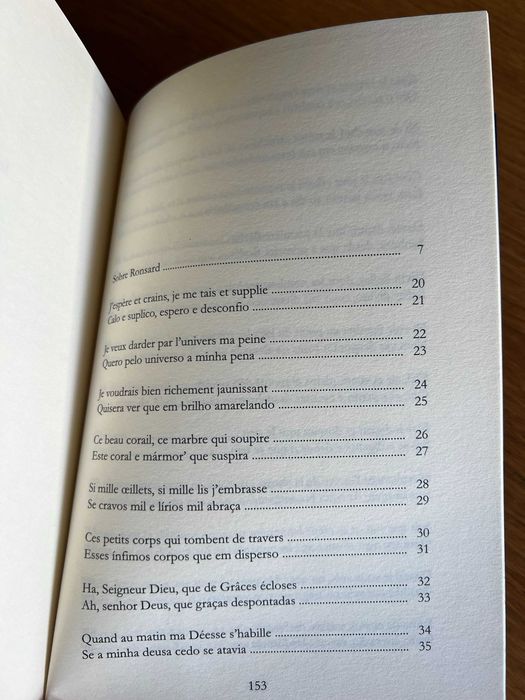 Sobre Ronsard ........ 7
J'espère et crains, je me tais et supplie ........ 20
Calo e suplico, espero e desconfio ........ 21
Je veux darder par l'univers ma peine ........ 22
Quero pelo universo a minha pena ........ 23
Je voudrais bien richement jaunissant ........ 24
Quisera ver que em brilho amarelando ........ 25
Ce beau corail, ce marbre qui soupire ........ 26
Este coral e mármor' que suspira ........ 27
Si mille œillets, si mille lis j'embrasse ........ 28
Se cravos mil e lírios mil abraça ........ 29
Ces petits corps qui tombent de travers ........ 30
Esses ínfimos corpos que em disperso ........ 31
Ha, Seigneur Dieu, que de Grâces écloses ........ 32
Ah, senhor Deus, que graças despontadas ........ 33
Quand au matin ma Déesse s'habille ........ 34
Se a minha deusa cedo se atavia ........ 35
153